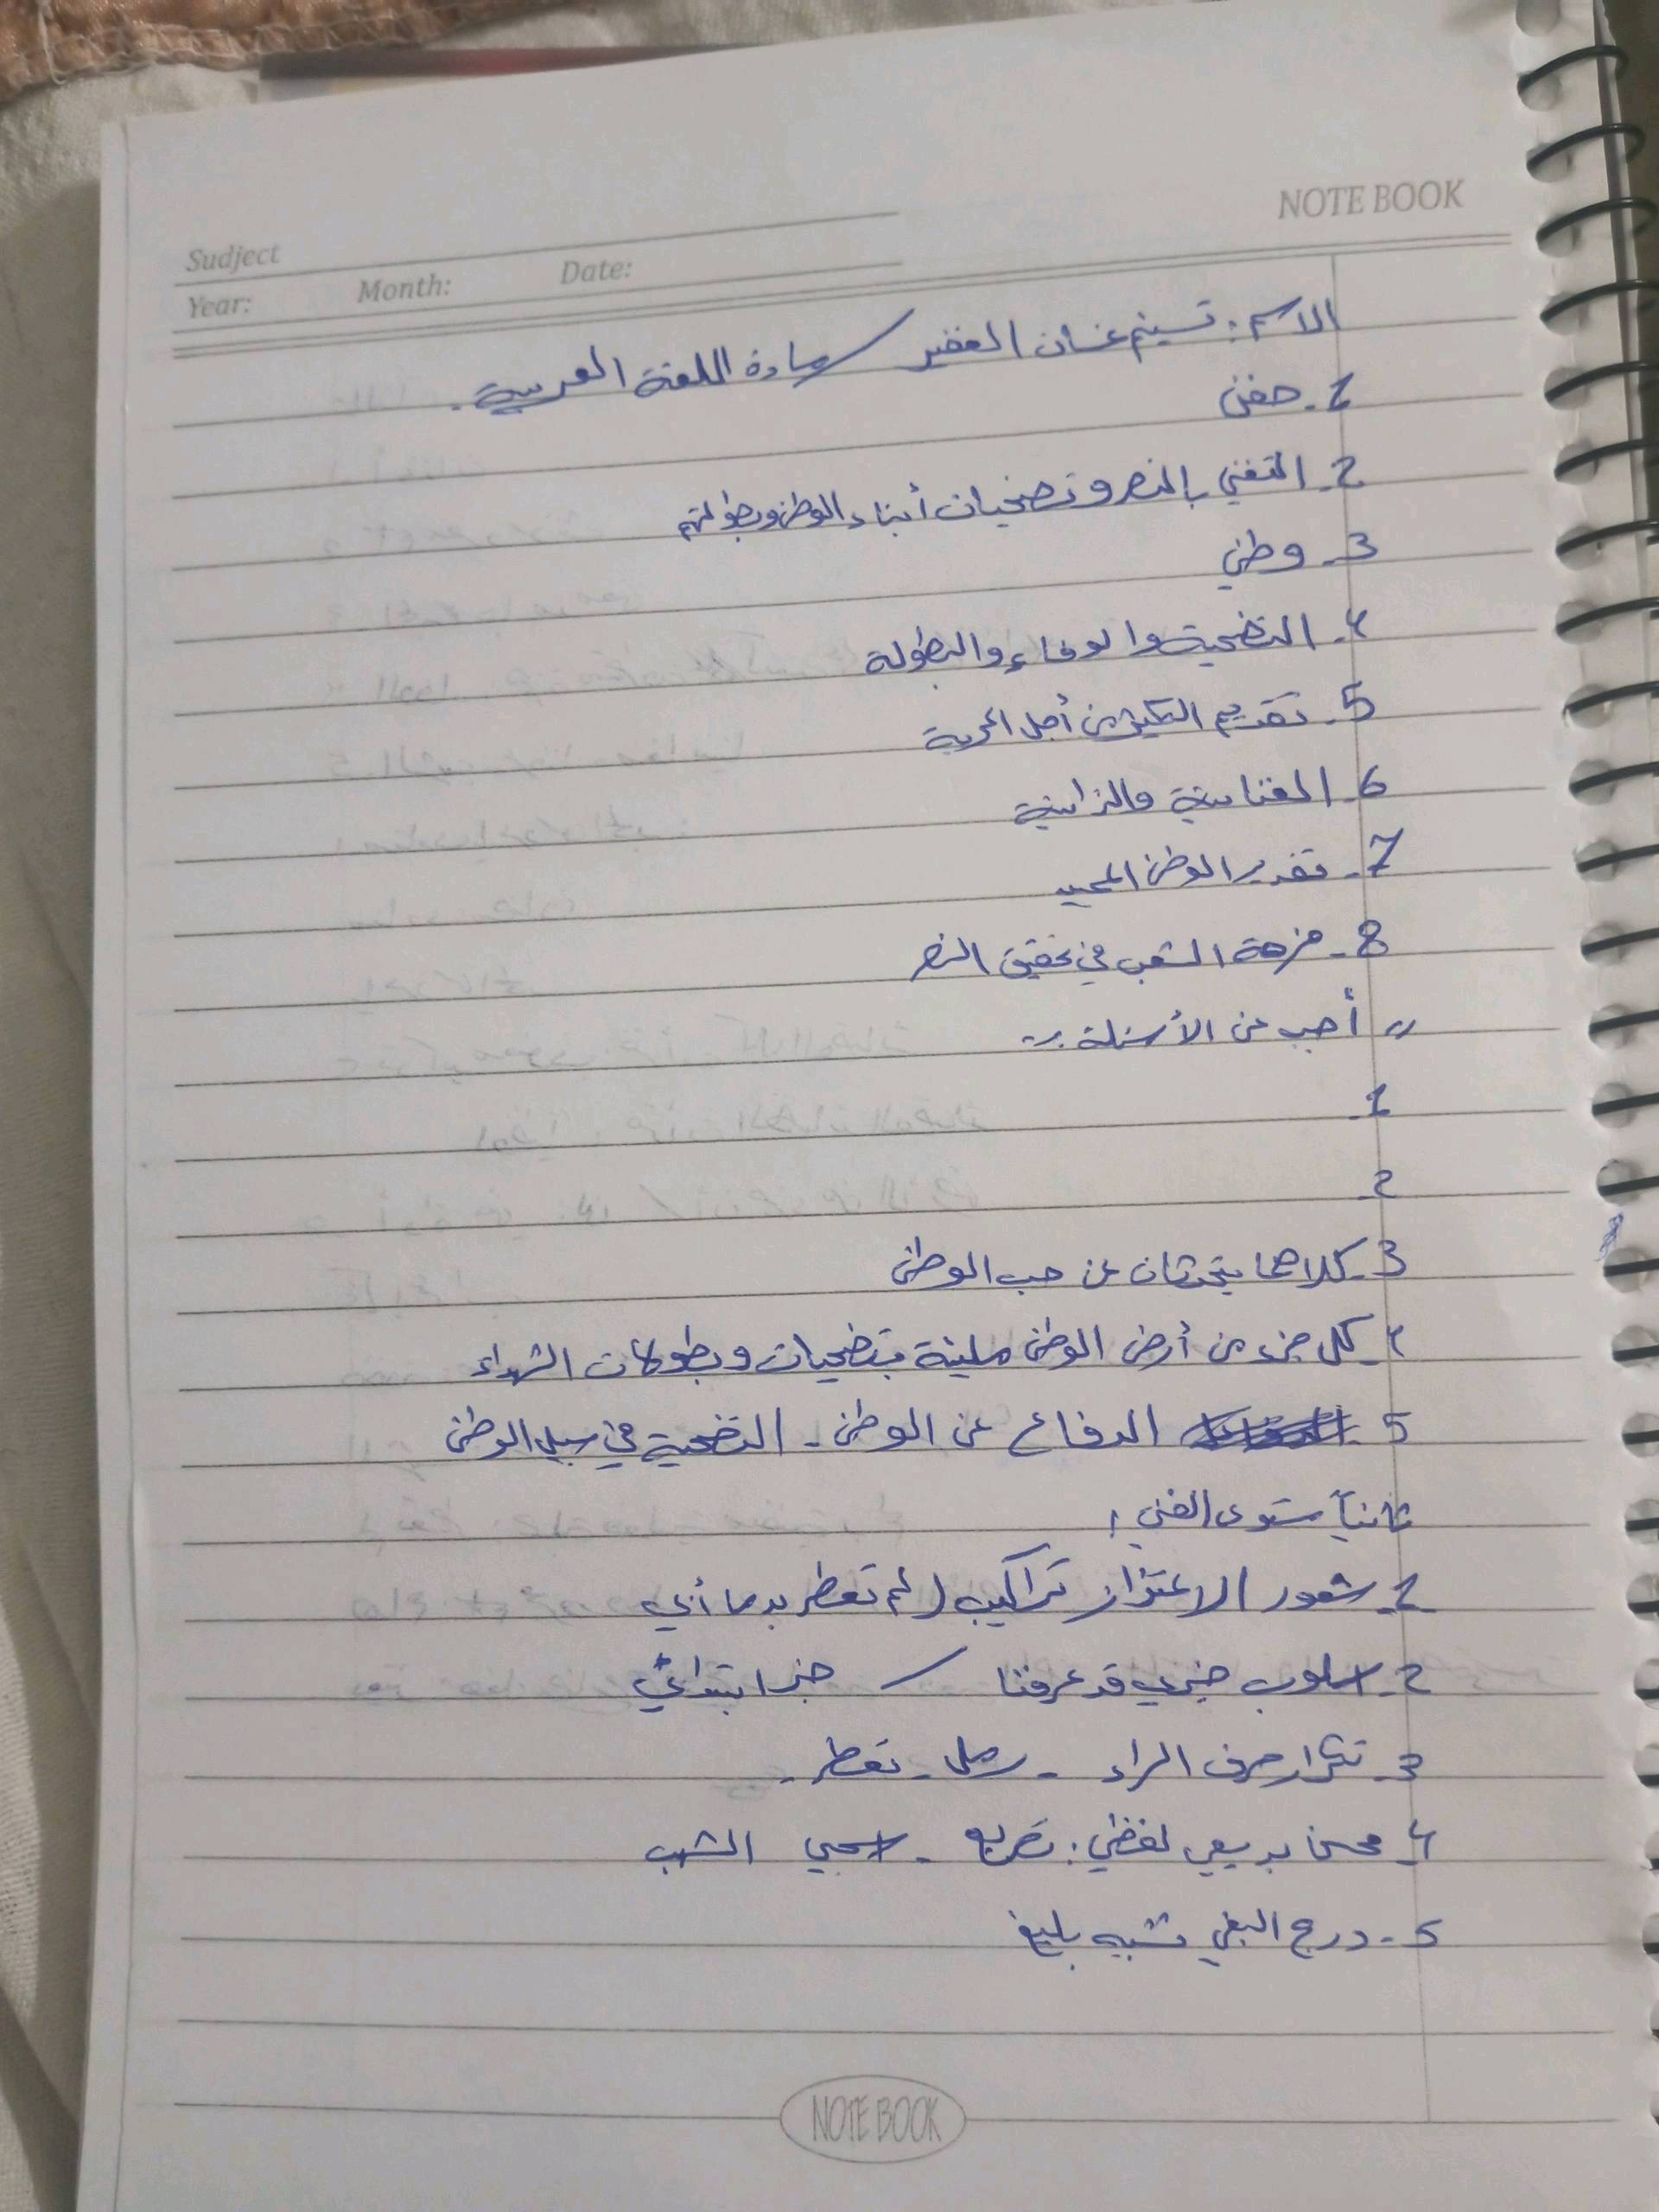 NOTE BOOK
Sudject
Year: Month: Date:
الاسم: تسنيم غسان الخضير / مادة اللغة العربية.
1. خفق
2. التغني بالنصر وتضحيات أبناء الوطن وبطولتهم
3. وطني
4. التضحية والوفاء والبطولة
5. تقديم الكثير من أجل الحرية
6. الغنائية والذاتية
7. تقدير الوطن المجيد
8. فرحة الشعب في تحقيق النصر
" أجب عن الأسئلة :-
1.
2.
3. كلاهما يتحدثان عن حب الوطن
4. كل جزء من أرض الوطن مليئة بتضحيات وبطولات الشهداء
5. الدفاع عن الوطن - التضحية في سبيل الوطن
ثانياً مستوى الفني :
1. شعور الاعتزاز تراكيب ( لم تعطر بدما أبي
2. اسلوب خبري قد عرفنا / خبر ابتدائي
3. تكرار حرف الراء - رمل - تعطر.
4. محسن بديعي لفظي: تصريع - اسحبي الشهب
5. درج البغي تشبيه بليغ
NOTE BOOK